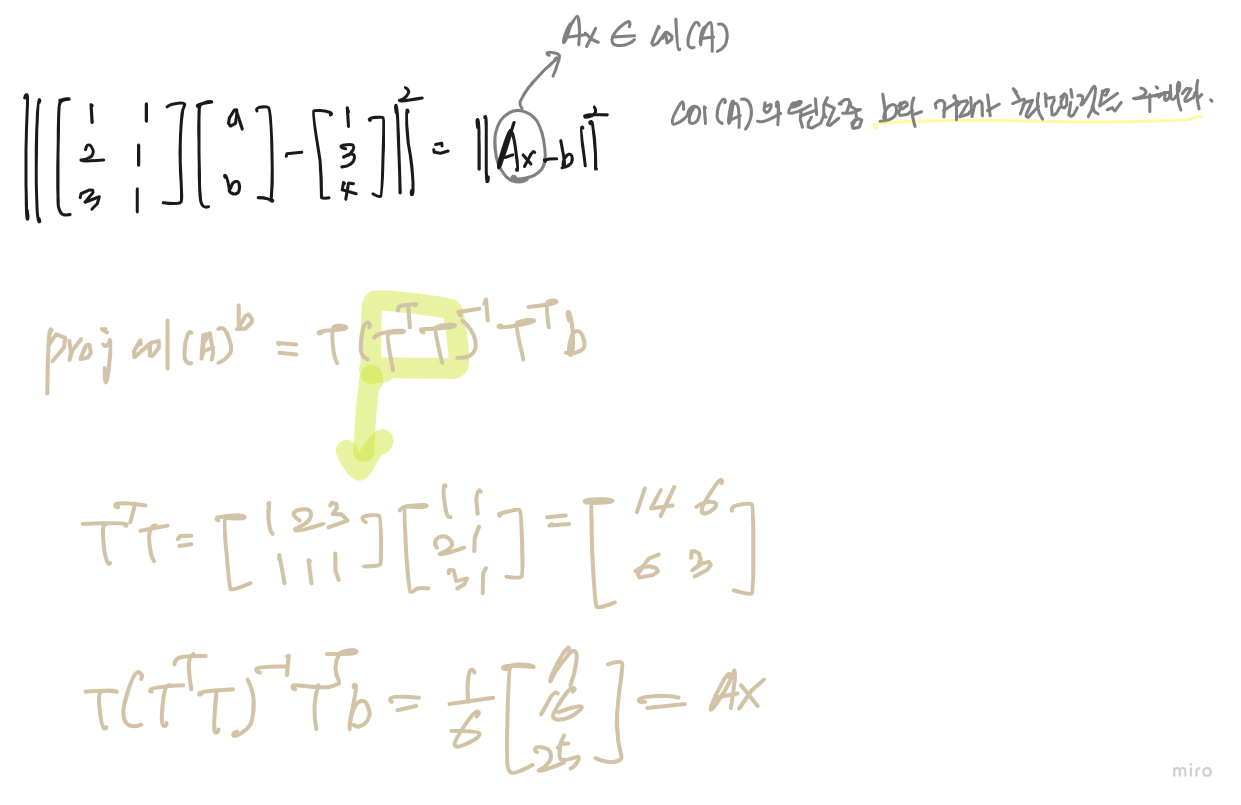 Ax ∈ col(A)
‖ [1 1; 2 1; 3 1] [a; b] - [1; 3; 4] ‖² = ‖Ax - b‖²
col(A)의 원소중 b와 거리가 최소인것을 구해라.
proj col(A)^b = T(TᵀT)⁻¹Tᵀb
TᵀT = [1 2 3; 1 1 1] [1 1; 2 1; 3 1] = [14 6; 6 3]
T(TᵀT)⁻¹Tᵀb = 1/6 [7; 16; 25] = Ax
miro